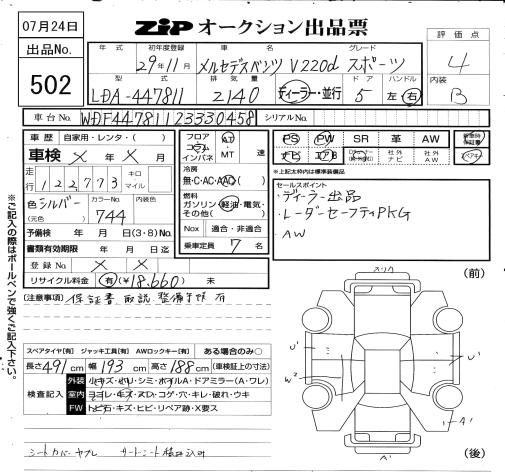 07月24日
ZIP オークション出品票
出品No.
502
評価点
4
内装
B
年式 初年度登録 車名 グレード
29年11月 メルセデスベンツ V220d スポーツ
型式 排気量 ドア ハンドル
LDA-447811 2140 ディーラー・並行 5 左 右
車台No. WDF44781123330458 シリアルNo.
車歴 自家用・レンタ・( )
車検 × 年 × 月
走行 122,773 キロ マイル
色(元色) シルバー カラーNo. 744
予備検 年 月 日(3・8)No.
書類有効期限 年 月 日迄
登録No. × ×
リサイクル料金 有(¥18,660) 未
フロア コラム インパネ AT・MT 速
冷房 無・C・AC・AAC
燃料 ガソリン・軽油・電気・その他( )
Nox 適合・非適合
乗車定員 7 名
PS PW SR 革 AW
ナビ エアB 社外ナビ 社外AW
新車時保証書
*上記太枠内は標準装備品
セールスポイント
・ディーラー出品
・レーダーセーフティPKG
・AW
※ご記入の際はボールペンで強くご記入下さい。
[注意事項] 保証書 取説 整備手帳 有
スペアタイヤ[有] ジャッキ工具[有] AWロックキー[有] ある場合のみ○
長さ491cm 幅193cm 高さ188cm (車検証上の寸法)
検査記入
外装 小キズ・小リ・シミ・ホイルA・ドアミラー(A・ワレ)
室内 ヨゴレ・キズ・スロ・コゲ・穴・キレ・破れ・ウキ
FW トビ石・キズ・ヒビ・リペア跡・X要ス
シートカバーヤブレ
(前)
スリA
U'
U'
W2
A'
A'
(後)